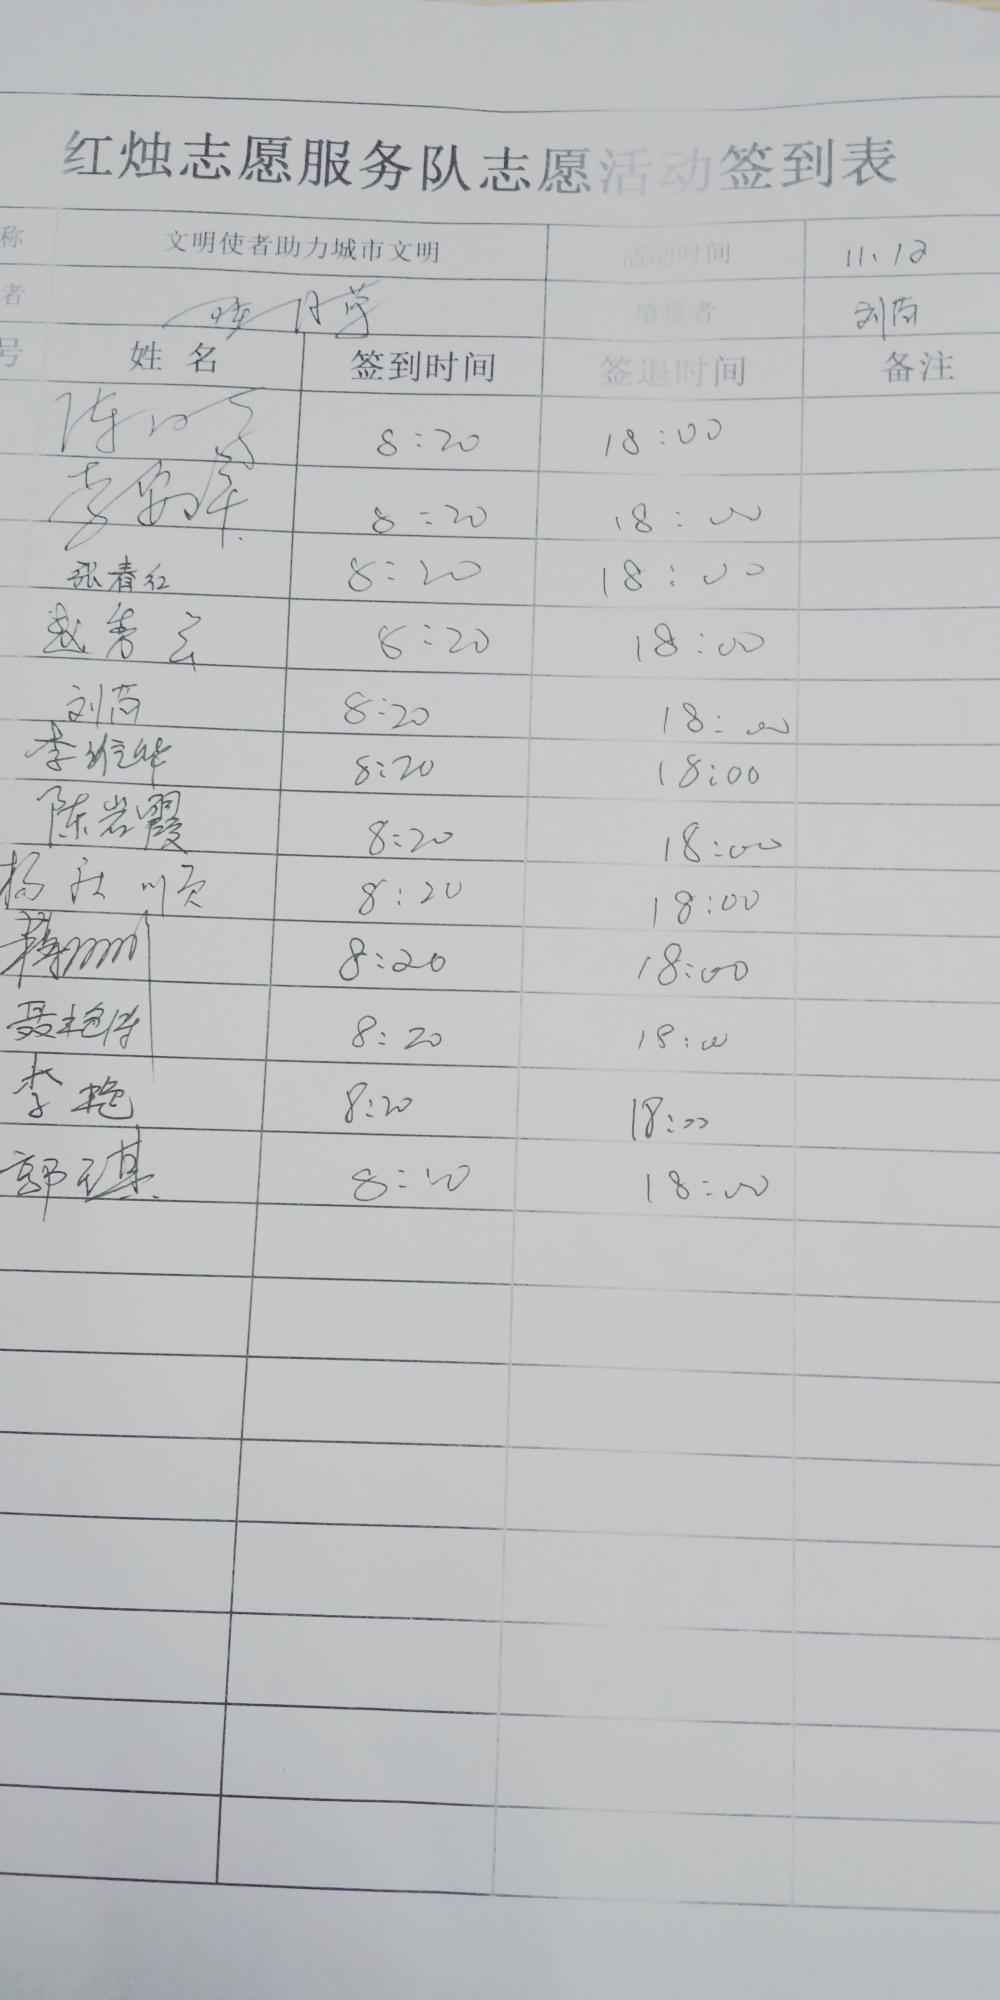 红烛志愿服务队志愿活动签到表
称 文明使者助力城市文明 活动时间 11.12
者 填报者 刘茵
号 姓名 签到时间 签退时间 备注
陈 8:20 18:00
李 8:20 18:00
张春红 8:20 18:00
赵秀云 8:20 18:00
刘茵 8:20 18:00
李维华 8:20 18:00
陈岩霞 8:20 18:00
杨 顺 8:20 18:00
8:20 18:00
聂艳伟 8:20 18:00
李艳 8:20 18:00
郭 琪 8:20 18:00